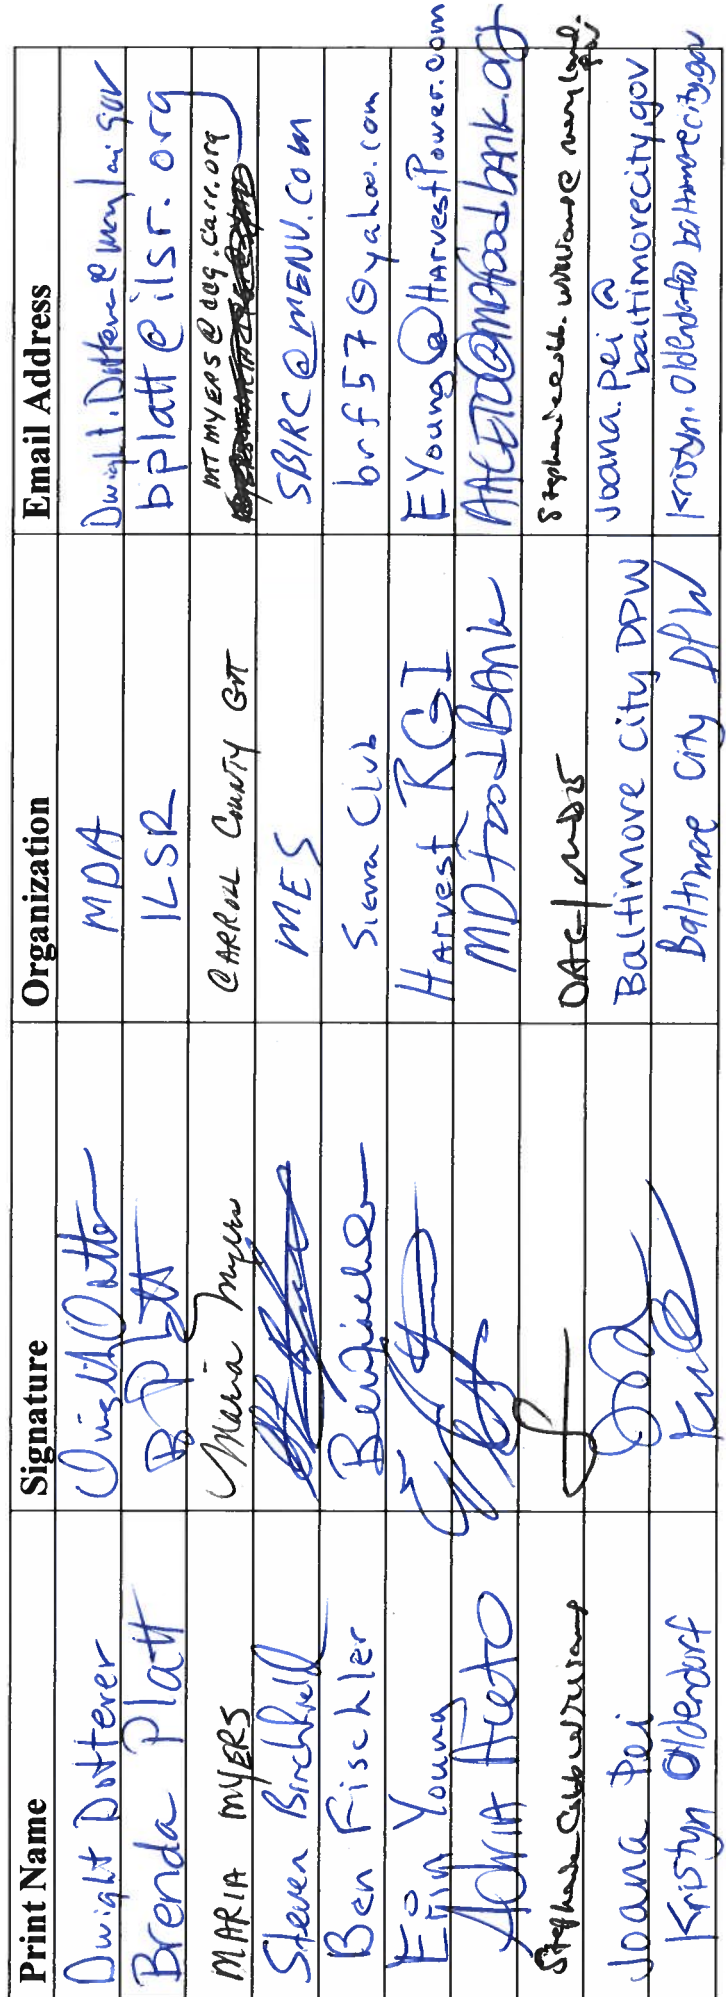 Print Name Signature Organization Email Address
Dwight Dotterer MDA
Brenda Platt B Platt ILSR bplatt@ilsr.org
MARIA MYERS Maria Myers CARROLL COUNTY GVT mtmyers@ccg.carr.org
Steven Birchfield MES SBIRC@MENV.COM
Ben Fischler Ben Fischler Sierra Club brf57@yahoo.com
Erin Young Harvest RGI EYoung@HarvestPower.com
MD Food BANK
Stephanie Cobb Williams OAG/MDE
Joana Pei Baltimore City DPW Joana.pei@
baltimorecity.gov
Kristyn Oldendorf Baltimore City DPW Kristyn.oldendorf@baltimorecity.gov